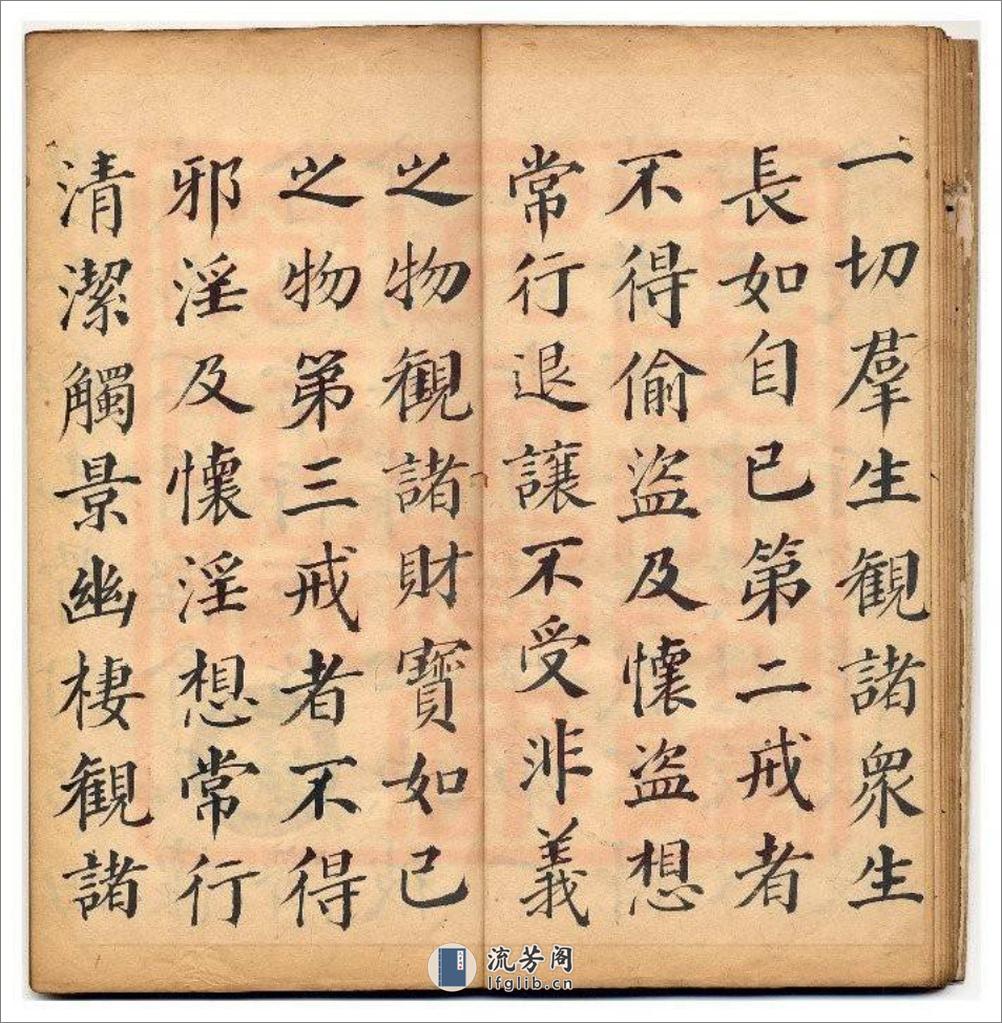 一切羣生觀諸衆生
長如自己第二戒者
不得偷盜及懷盜想
常行退讓不受非義
之物觀諸財寶如己
之物第三戒者不得
邪淫及懷淫想常行
清潔觸景幽棲觀諸
流芳阁
lfglib.cn